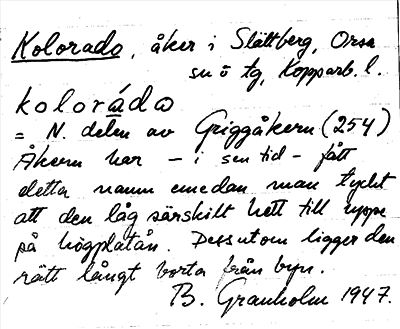 Kolorado, åker i Slättberg, Orsa
sn o tg, Kopparb. l.
kolorádω
= N. delen av Griggåkern (254)
Åkern har – i sen tid – fått
detta namn emedan man tyckt
att den låg särskilt hett till uppe
på högplatån. Dessutom ligger den
rätt långt borta från byn.
B. Granholm 1947.